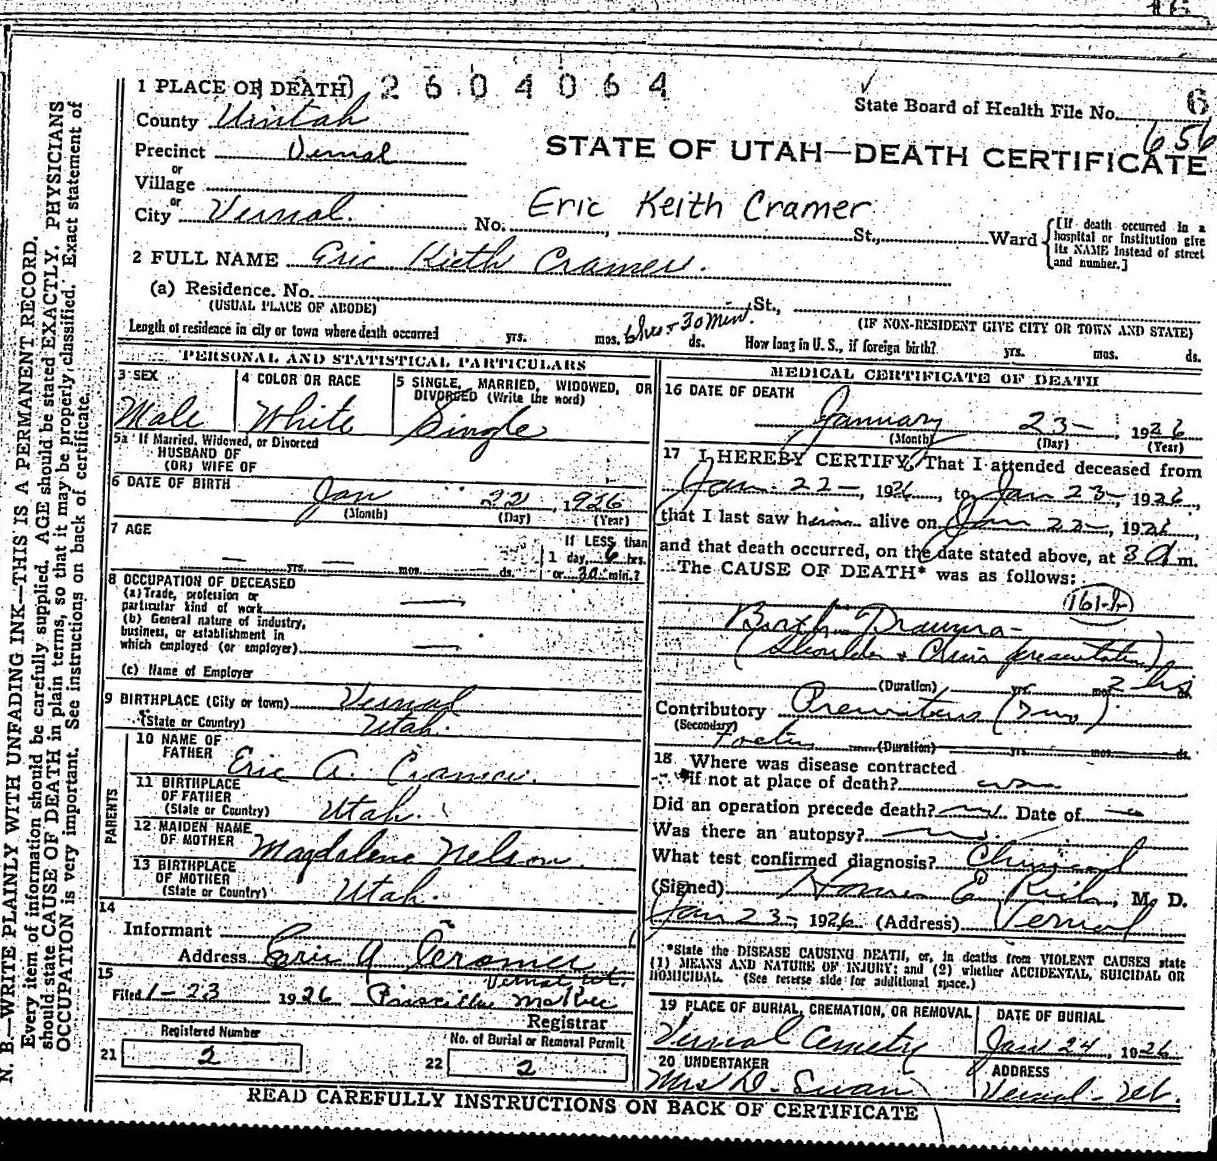 1 PLACE OF DEATH) 2 6 0 4 0 6 4
State Board of Health File No. 6
656
County Uintah
STATE OF UTAH—DEATH CERTIFICATE
Precinct Vernal
or
Village
or
City Vernal. No. , St., Ward
Eric Keith Cramer
[If death occurred in a
hospital or institution give
its NAME instead of street
and number.]
2 FULL NAME Eric Kieth Cramer.
(a) Residence. No. St.,
(USUAL PLACE OF ABODE) (IF NON-RESIDENT GIVE CITY OR TOWN AND STATE)
Length of residence in city or town where death occurred yrs. mos. 6 hrs + 30 Min. ds. How long in U. S., if foreign birth? yrs. mos. ds.
PERSONAL AND STATISTICAL PARTICULARS
3 SEX
Male
4 COLOR OR RACE
White
5 SINGLE, MARRIED, WIDOWED, OR
DIVORCED (Write the word)
Single
5a If Married, Widowed, or Divorced
HUSBAND OF
(OR) WIFE OF
6 DATE OF BIRTH Jan 22, 1926
(Month) (Day) (Year)
7 AGE
— yrs. — mos. — ds.
If LESS than
1 day, 6 hrs.
or 30 min.?
8 OCCUPATION OF DECEASED
(a) Trade, profession or
particular kind of work —
(b) General nature of industry,
business, or establishment in
which employed (or employer) —
(c) Name of Employer
9 BIRTHPLACE (City or town) Vernal
(State or Country) Utah.
PARENTS
10 NAME OF
FATHER Eric A. Cramer.
11 BIRTHPLACE
OF FATHER
(State or Country) Utah.
12 MAIDEN NAME
OF MOTHER Magdelene Nelson.
13 BIRTHPLACE
OF MOTHER
(State or Country) Utah.
14
Informant
Address Eric A Cramer
Vernal, Ut.
15
Filed 1-23 1926 Priscilla
Registrar
Registered Number
21 2
No. of Burial or Removal Permit
22 2
MEDICAL CERTIFICATE OF DEATH
16 DATE OF DEATH
January 23-, 1926
(Month) (Day) (Year)
17 I HEREBY CERTIFY, That I attended deceased from
Jan. 22-, 1926, to Jan 23-, 1926,
that I last saw him alive on Jan 22-, 1926,
and that death occurred, on the date stated above, at 3 a m.
The CAUSE OF DEATH* was as follows:
161-b
Birth Trauma-
(Shoulder + Chin presentation)
(Duration) yrs. mos. 2 hrs ds.
Contributory
(Secondary)
Foetus (Duration) yrs. mos. ds.
18 Where was disease contracted
if not at place of death?
Did an operation precede death? no. Date of —
Was there an autopsy? no.
What test confirmed diagnosis? Clinical
(Signed) Homer E. , M. D.
Jan 23-, 1926 (Address) Vernal
*State the DISEASE CAUSING DEATH, or, in deaths from VIOLENT CAUSES state
(1) MEANS AND NATURE OF INJURY; and (2) whether ACCIDENTAL, SUICIDAL OR
HOMICIDAL. (See reverse side for additional space.)
19 PLACE OF BURIAL, CREMATION, OR REMOVAL
Vernal Cemetry
DATE OF BURIAL
Jan 24, 1926
20 UNDERTAKER
Mrs D. Swan
ADDRESS
Vernal - Ut.
READ CAREFULLY INSTRUCTIONS ON BACK OF CERTIFICATE
N. B.—WRITE PLAINLY WITH UNFADING INK—THIS IS A PERMANENT RECORD.
Every item of information should be carefully supplied. AGE should be stated EXACTLY. PHYSICIANS
should state CAUSE OF DEATH in plain terms, so that it may be properly classified. Exact statement of
OCCUPATION is very important. See instructions on back of certificate.